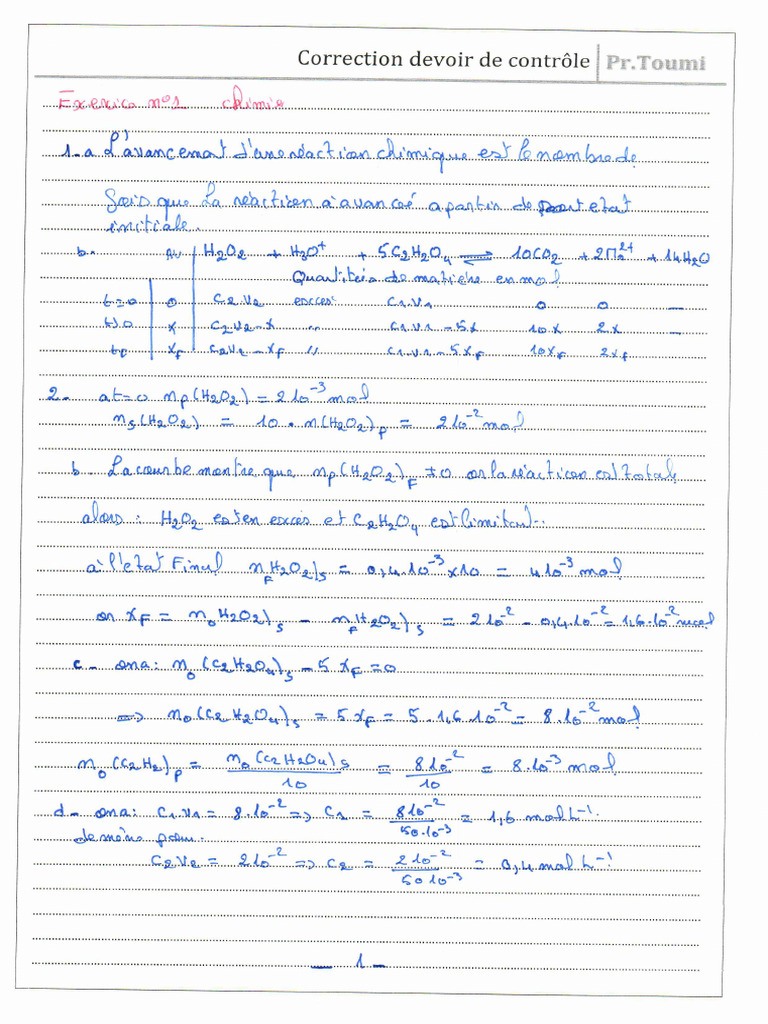 Correction devoir de contrôle Pr.Toumi
Exercice n°1 chimie
1-a L'avancement d'une réaction chimique est le nombre de
fois que La réaction a avancé a partir de son etat
initiale.
b. Av H2O2 + H3O+ + 5C2H2O4 ⇌ 10CO2 + 2Mn2+ + 14H2O
Quantités de matière en mol
t=0 0 C2V2 excés C1V1 0 0 —
t>0 x C2V2-x " C1V1-5x 10x 2x —
tF xF C2V2-xF " C1V1-5xF 10xF 2xF
2- at=0 np(H2O2) = 2 10^-3 mol
ns(H2O2) = 10 · n(H2O2)p = 2 10^-2 mol
b. La courbe montre que np(H2O2)F ≠ 0 or la réaction est totale
alors : H2O2 est en excès et C2H2O4 est limitant.
à l'etat Final nF(H2O2)s = 0,4.10^-3 × 10 = 4 10^-3 mol
or xF = n0(H2O2)s - nF(H2O2)s = 2 10^-2 - 0,4.10^-2 = 1,6.10^-2 mol
c - ona: n0(C2H2O4)s - 5xF = 0
⇒ n0(C2H2O4)s = 5xF = 5 . 1,6 10^-2 = 8.10^-2 mol
n0(C2H2)p = n0(C2H2O4)s / 10 = 8 10^-2 / 10 = 8.10^-3 mol
d - ona: C1V1 = 8.10^-2 ⇒ C1 = 8 10^-2 / 50.10^-3 = 1,6 mol L^-1.
de même pour.
C2V2 = 2 10^-2 ⇒ C2 = 2 10^-2 / 50 10^-3 = 0,4 mol L^-1
— 1 —